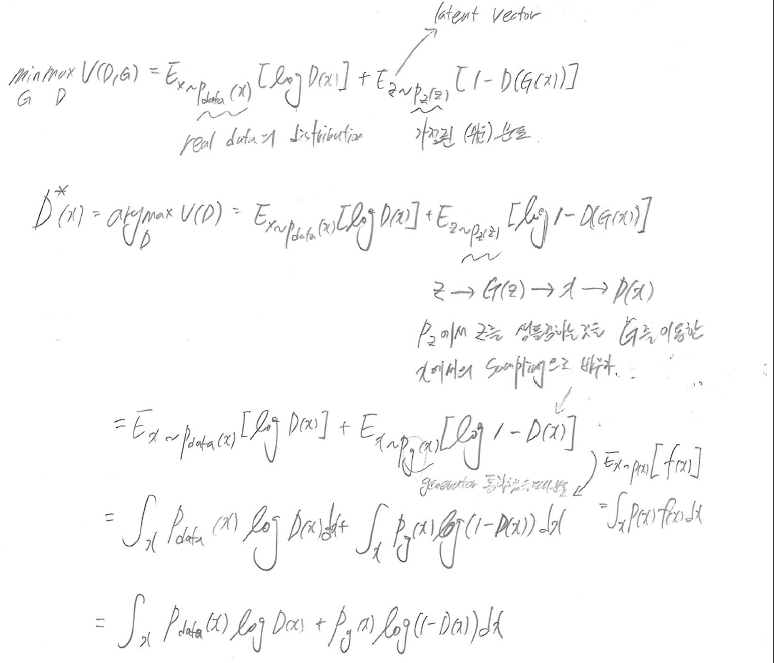 latent vector
min max V(D,G) = E_{x~p_data(x)} [log D(x)] + E_{z~p_z(z)} [1 - D(G(x))]
G D
real data의 distribution
가정된 분포
D*(x) = argmax_D V(D) = E_{x~p_data(x)} [log D(x)] + E_{z~p_z(z)} [log 1 - D(G(x))]
z → G(z) → x → D(x)
P_z에서 z를 샘플링하는것을 G를 이용한
x에서의 sampling으로 바꾸자.
= E_{x~p_data(x)} [log D(x)] + E_{x~p_g(x)} [log 1 - D(x)]
generator
E_{x~p(x)} [f(x)]
= ∫_x p(x) f(x) dx
= ∫_x P_data(x) log D(x) dx + ∫_x P_g(x) log(1 - D(x)) dx
= ∫_x P_data(x) log D(x) + P_g(x) log(1 - D(x)) dx